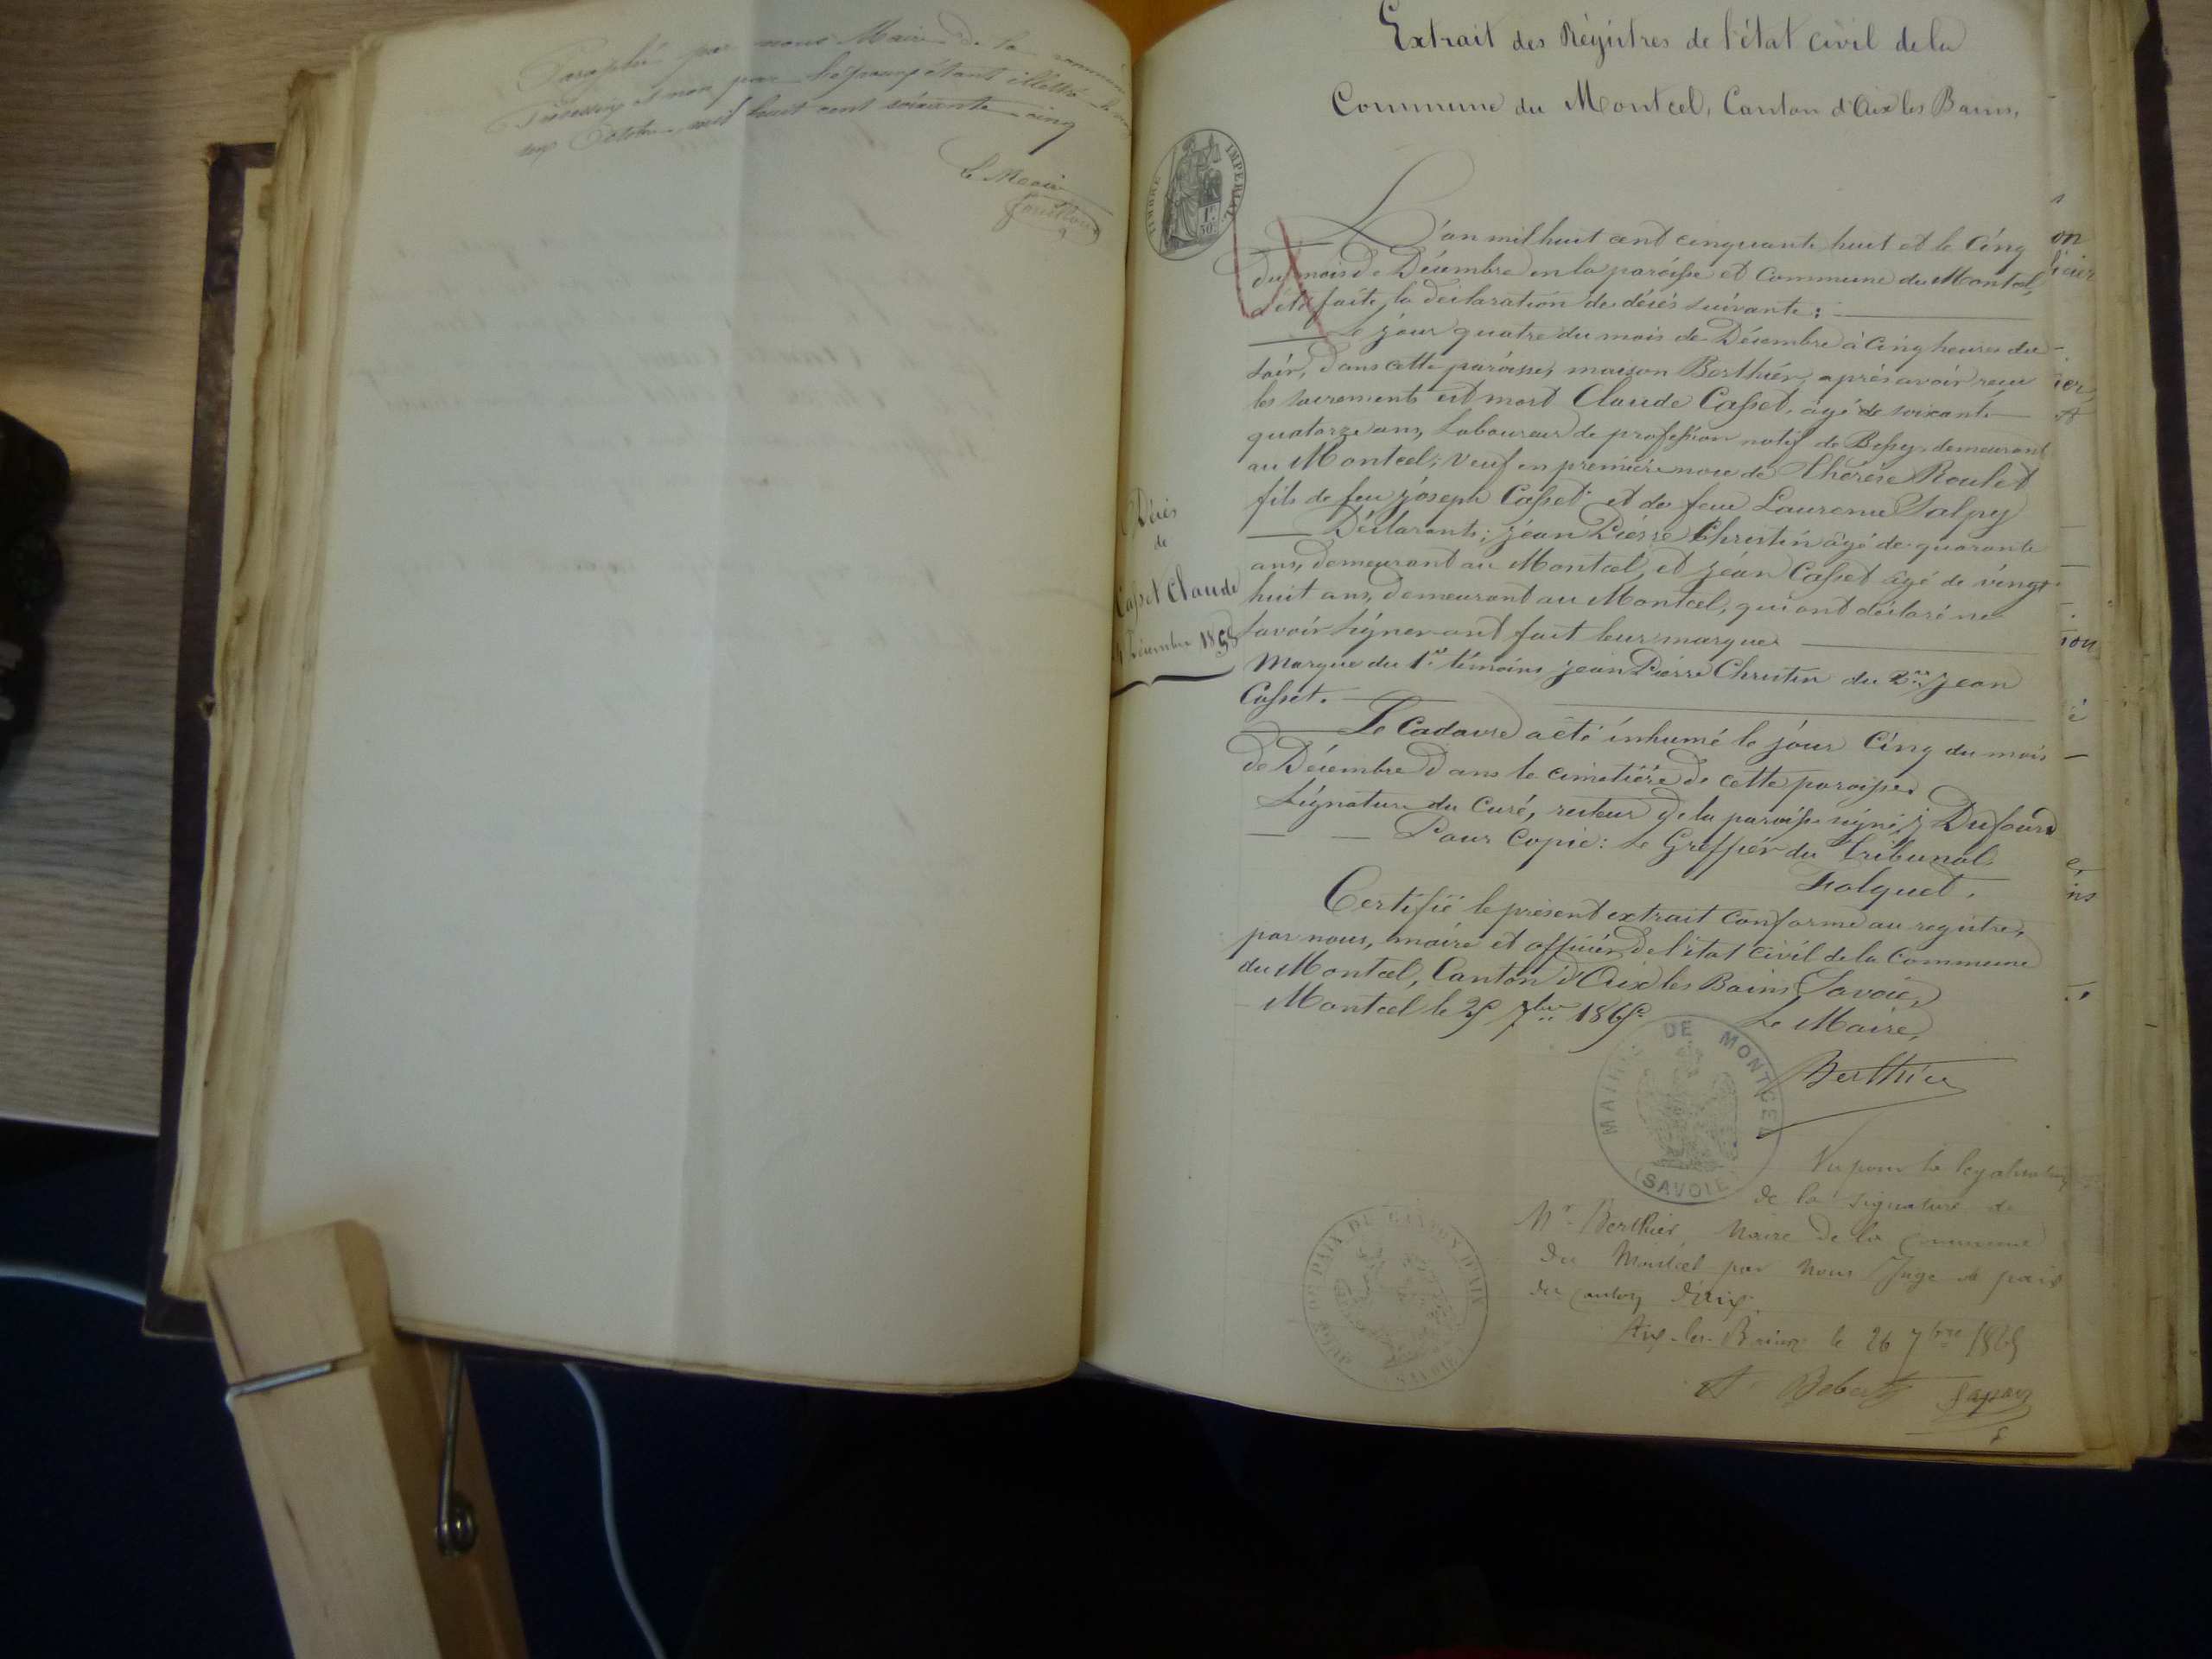 Paraphé par nous Maire de la commune
Tresserve et non par l'époux étant illettré le
Octobre mil huit cent soixante cinq
Le Maire
Extrait des Régistres de l'état civil de la
Commune du Montcel, Canton d'Aix les Bains,
TIMBRE IMPERIAL
1F 50
L'an mil huit cent cinquante huit et le Cinq
du mois de Décembre en la paroisse et Commune du Montcel,
a été faite la déclaration de décès suivante:
Le jour quatre du mois de Décembre à Cinq heures du
soir, dans cette paroisse, maison Berthier, après avoir reçu
les sacrements est mort Claude Casset, âgé de soixante
quatorze ans, Laboureur de profession natif de Bessy, demeurant
au Montcel; Veuf en première noce de Thérèse Roulet
fils de feu joseph Casset et de feue Laurence Salpy
Déclarants; jean Pierre Christin âgé de quarante
ans, demeurant au Montcel, et jean Casset âgé de vingt
huit ans, demeurant au Montcel, qui ont déclaré ne
savoir signer ont fait leur marque
Marque du 1er témoins jean Pierre Christin du 2me jean
Casset.
Décès
de
Casset Claude
4 Décembre 1858
Le Cadavre a été inhumé le jour Cinq du mois
de Décembre dans le cimetière de cette paroisse.
Signature du Curé, recteur de la paroisse signé j Dufourd
Pour Copie: le Greffier du tribunal
Folquet.
Certifié le présent extrait Conforme au registre,
par nous, maire et officier de l'état civil de la Commune
du Montcel, Canton d'Aix les Bains (Savoie,)
Montcel le 25 7bre 1865 Le Maire,
MAIRIE DE MONTCEL
(SAVOIE)
Berthier
Vu pour la légalisation
de la signature de
Mr Berthier, Maire de la commune
du Montcel par nous Juge de paix
du canton d'Aix.
Aix-les-Bains le 26 7bre 1865
JUGE DE PAIX DU CANTON D'AIX
SAVOIE